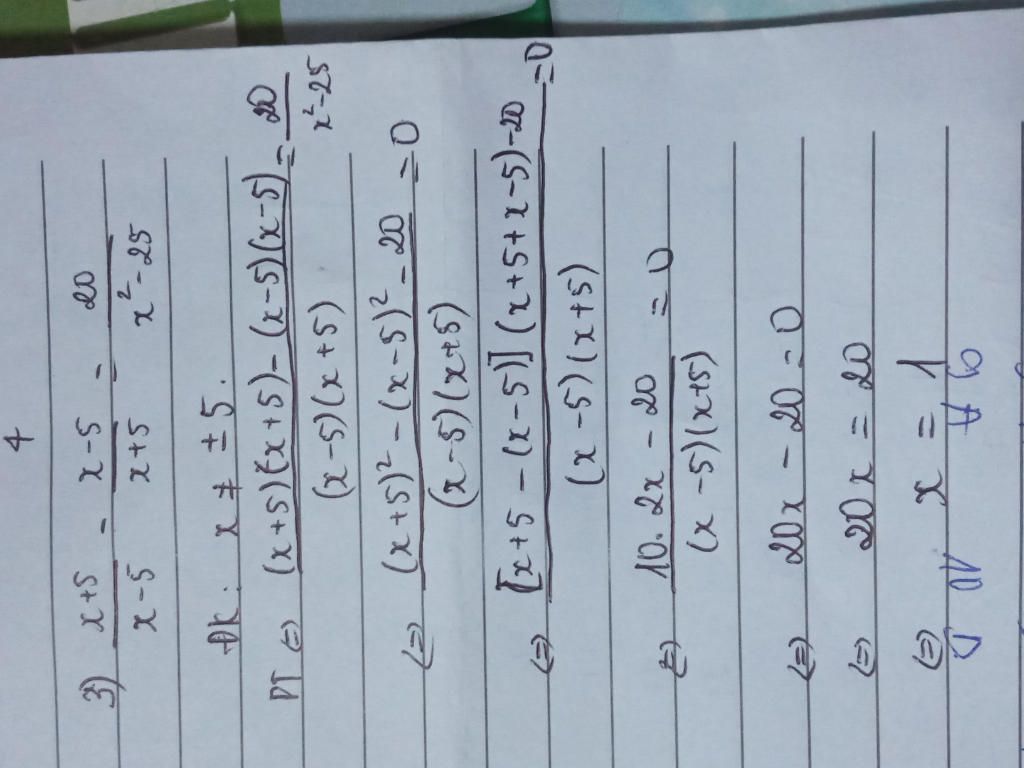 4
3) x+5/x-5 - x-5/x+5 = 20/x²-25
ĐK: x ≠ ±5.
PT (=) (x+5)(x+5)-(x-5)(x-5)/(x-5)(x+5) = 20/x²-25
(=) (x+5)²-(x-5)²-20/(x-5)(x+5) = 0
(=) [x+5-(x-5)](x+5+x-5)-20/(x-5)(x+5) = 0
(=) 10.2x-20/(x-5)(x+5) = 0
(=) 20x-20=0
(=) 20x=20
(=) x=1